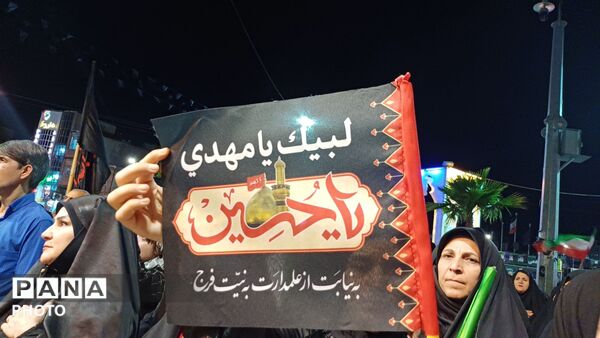 لبيك يا مهدي
يا حسین
به نیابت از علمدارت به نیت فرج
PANA
PHOTO